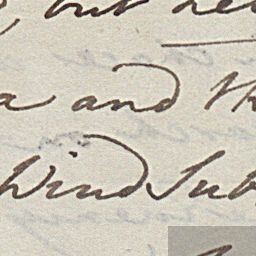 , but
a and th
Wind Sub